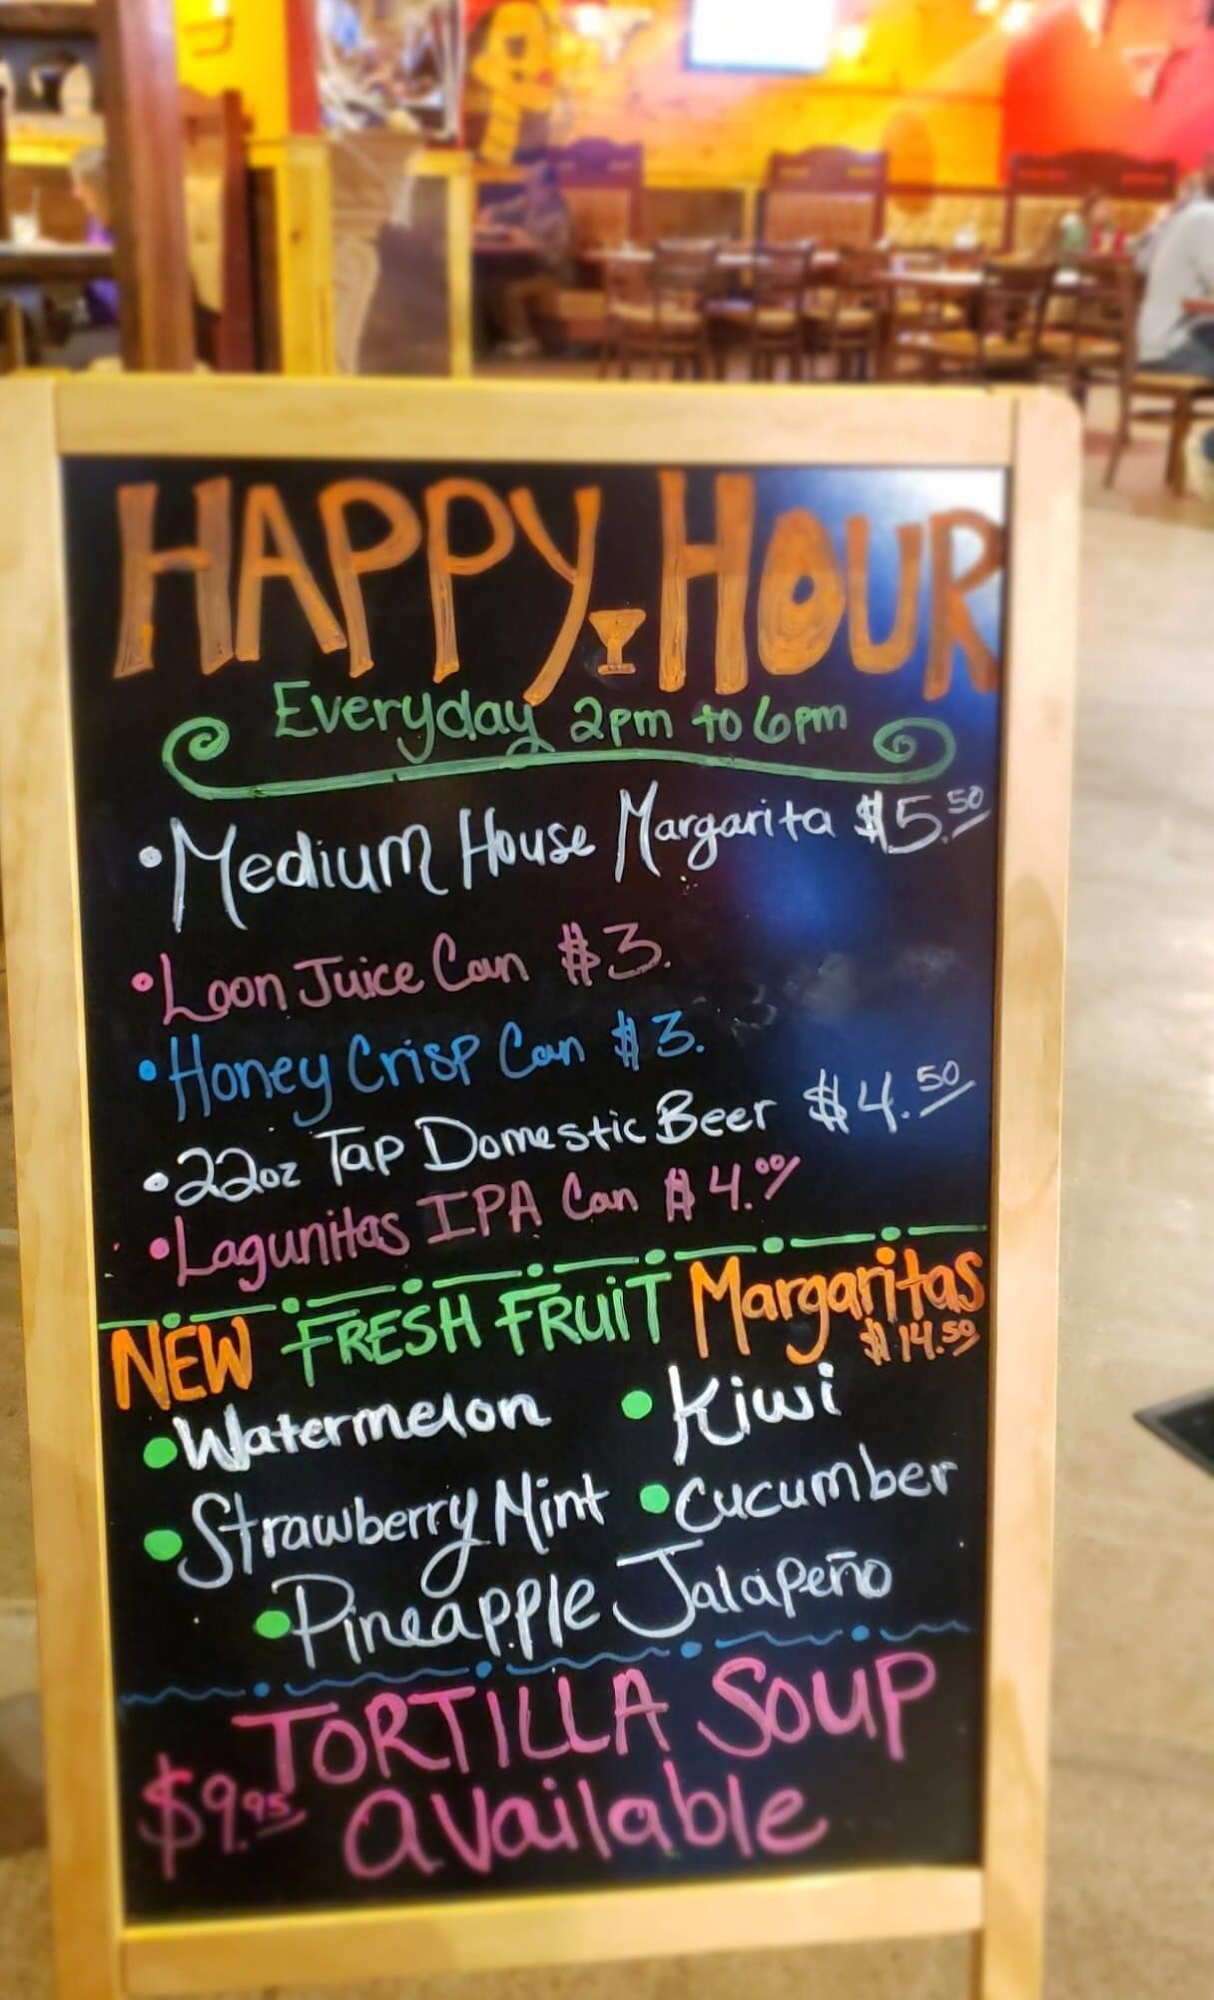 HAPPY HOUR
Everyday 2pm to 6pm
• Medium House Margarita $5.50
• Loon Juice Can $3.
• Honey Crisp Can $3.
• 22oz Tap Domestic Beer $4.50
• Lagunitas IPA Can $4.00
NEW FRESH FRUIT Margaritas
$14.50
• Watermelon • Kiwi
• Strawberry Mint • Cucumber
• Pineapple Jalapeño
TORTILLA SOUP
$9.95 available